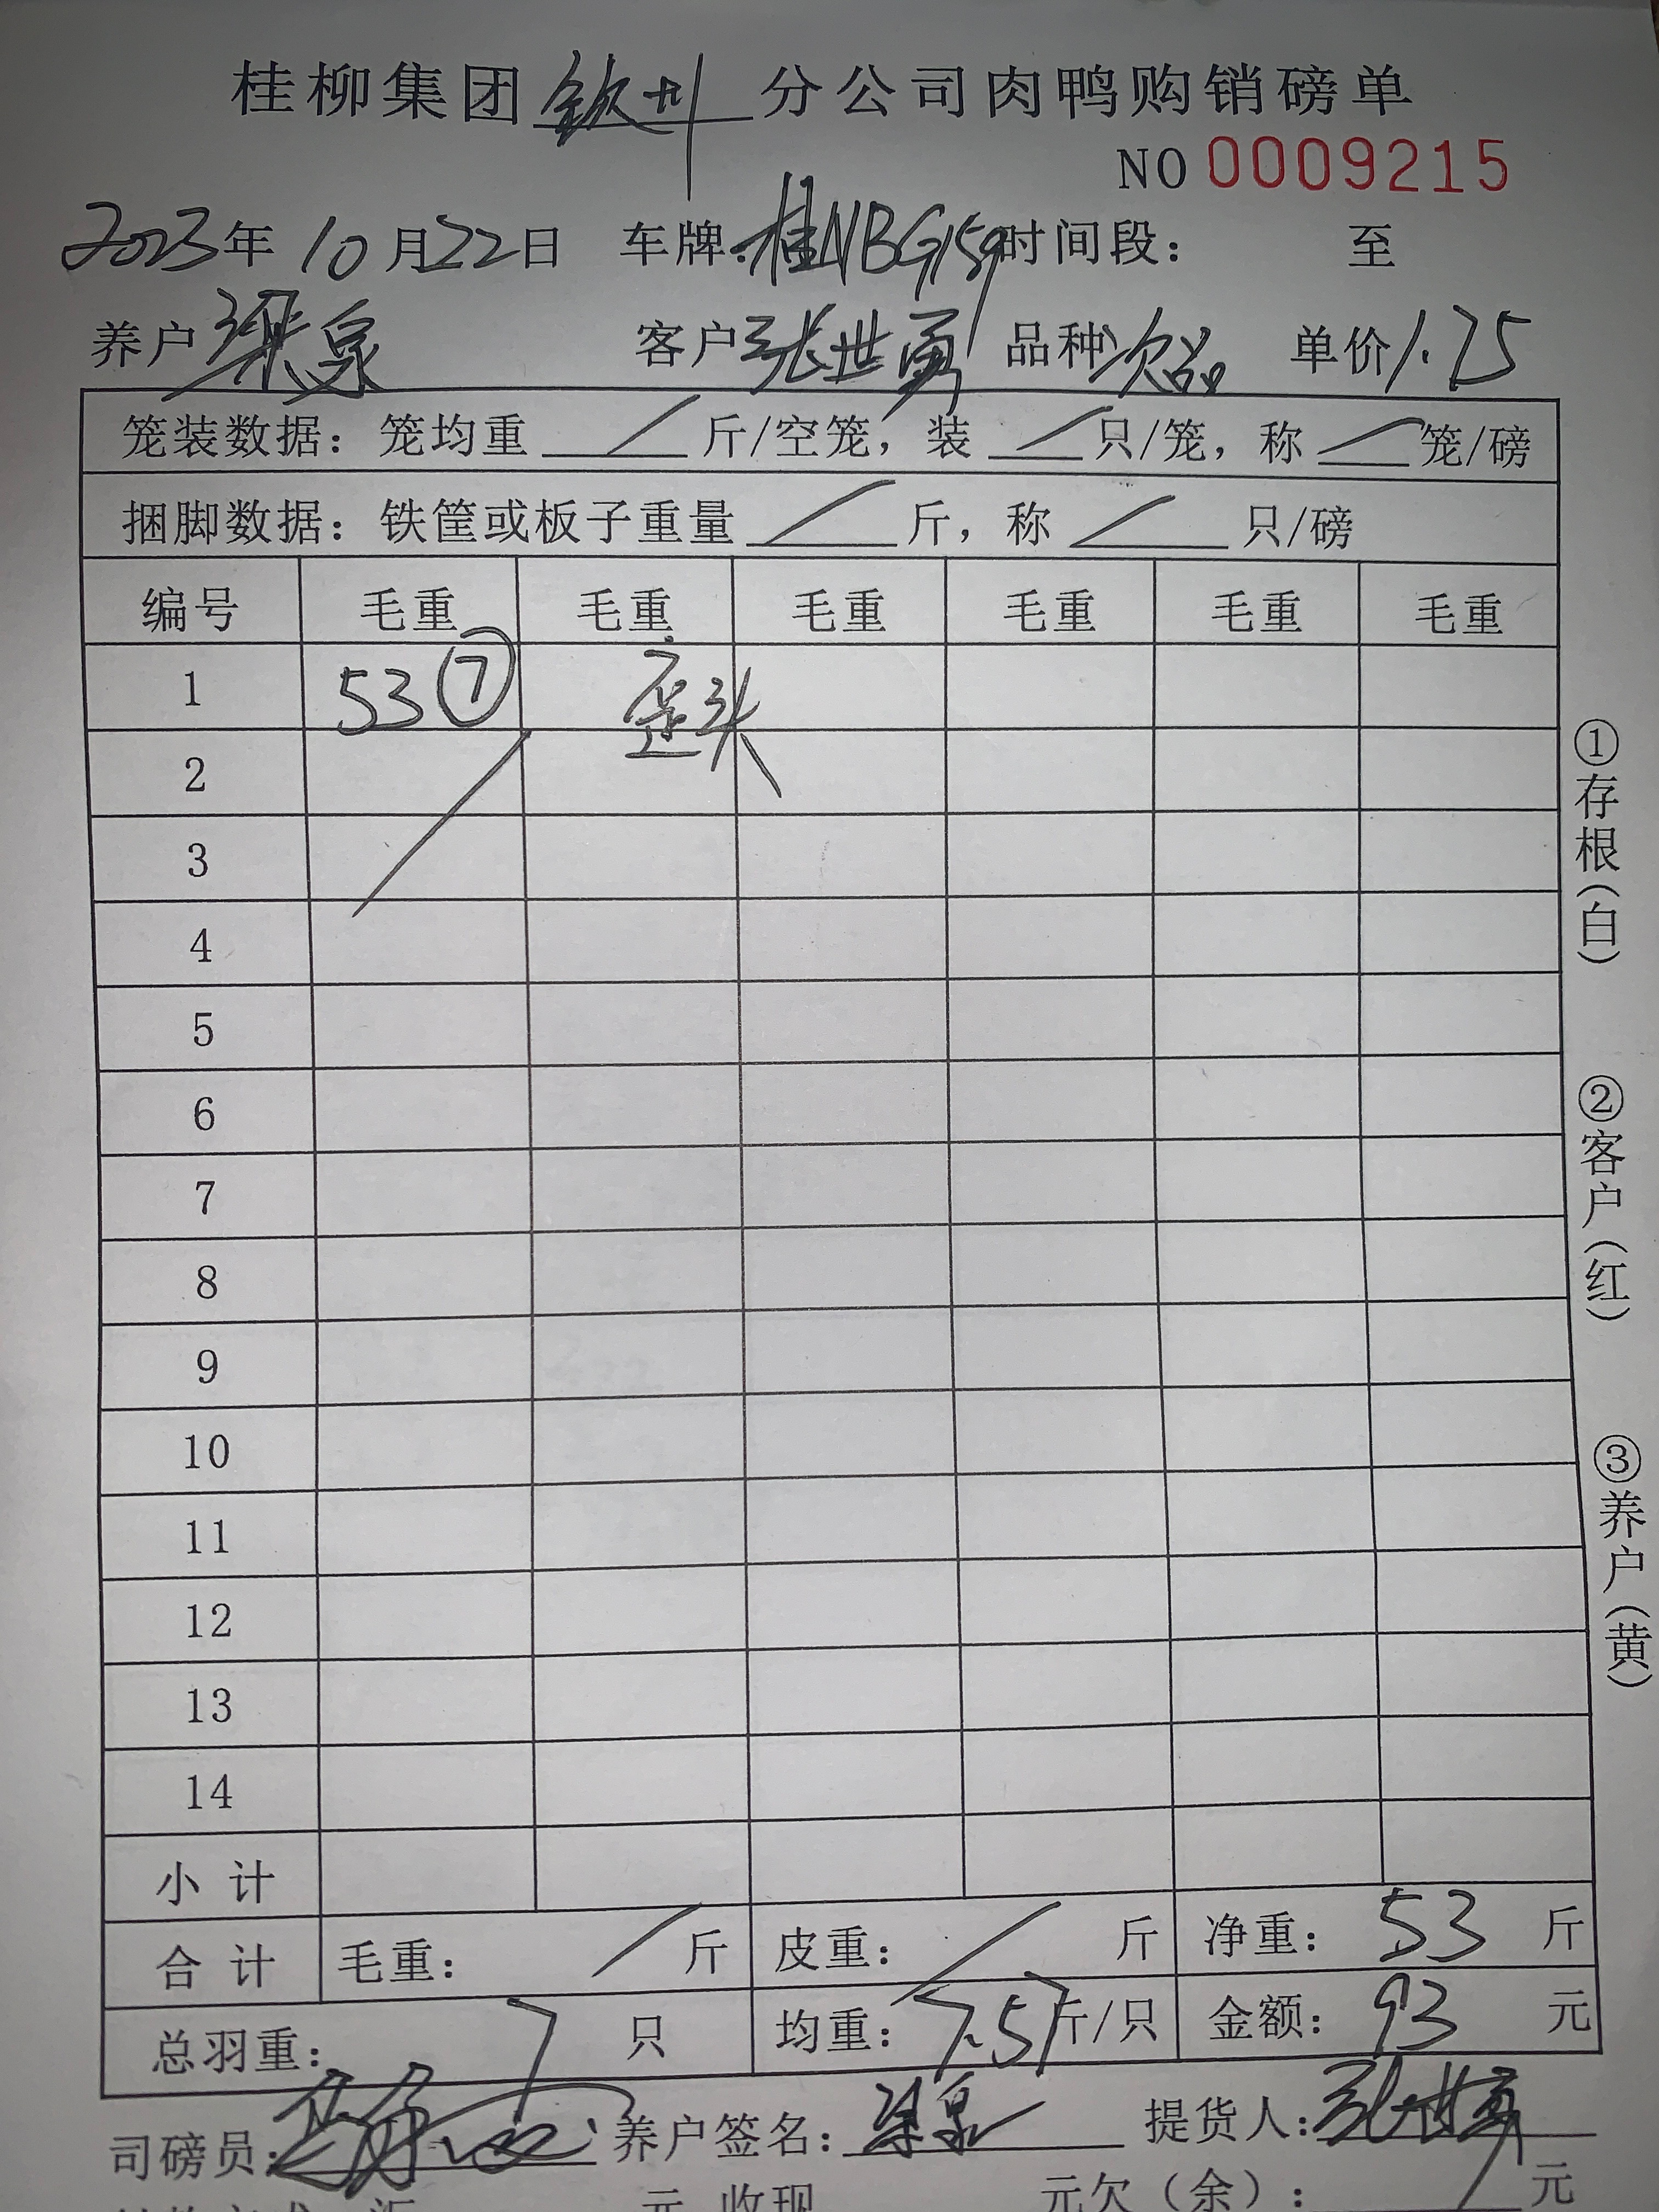 桂柳集团钦州分公司肉鸭购销磅单
NO 0009215
2023年10月22日 车牌:桂NBG159 时间段: 至
养户 梁泉 客户 张世勇 品种 次品 单价 1.75
笼装数据: 笼均重 / 斤/空笼, 装 / 只/笼, 称 / 笼/磅
捆脚数据: 铁筐或板子重量 / 斤, 称 / 只/磅
编号 毛重 毛重 毛重 毛重 毛重 毛重
1 53 ⑦ 歪头
2
3
4
5
6
7
8
9
10
11
12
13
14
小计
合计 毛重: / 斤 皮重: / 斤 净重: 53 斤
总羽重: 7 只 均重: 7.57 斤/只 金额: 93 元
司磅员: 养户签名: 梁泉 提货人: 张世勇
元 收现 元欠(余): / 元
①存根(白)
②客户(红)
③养户(黄)